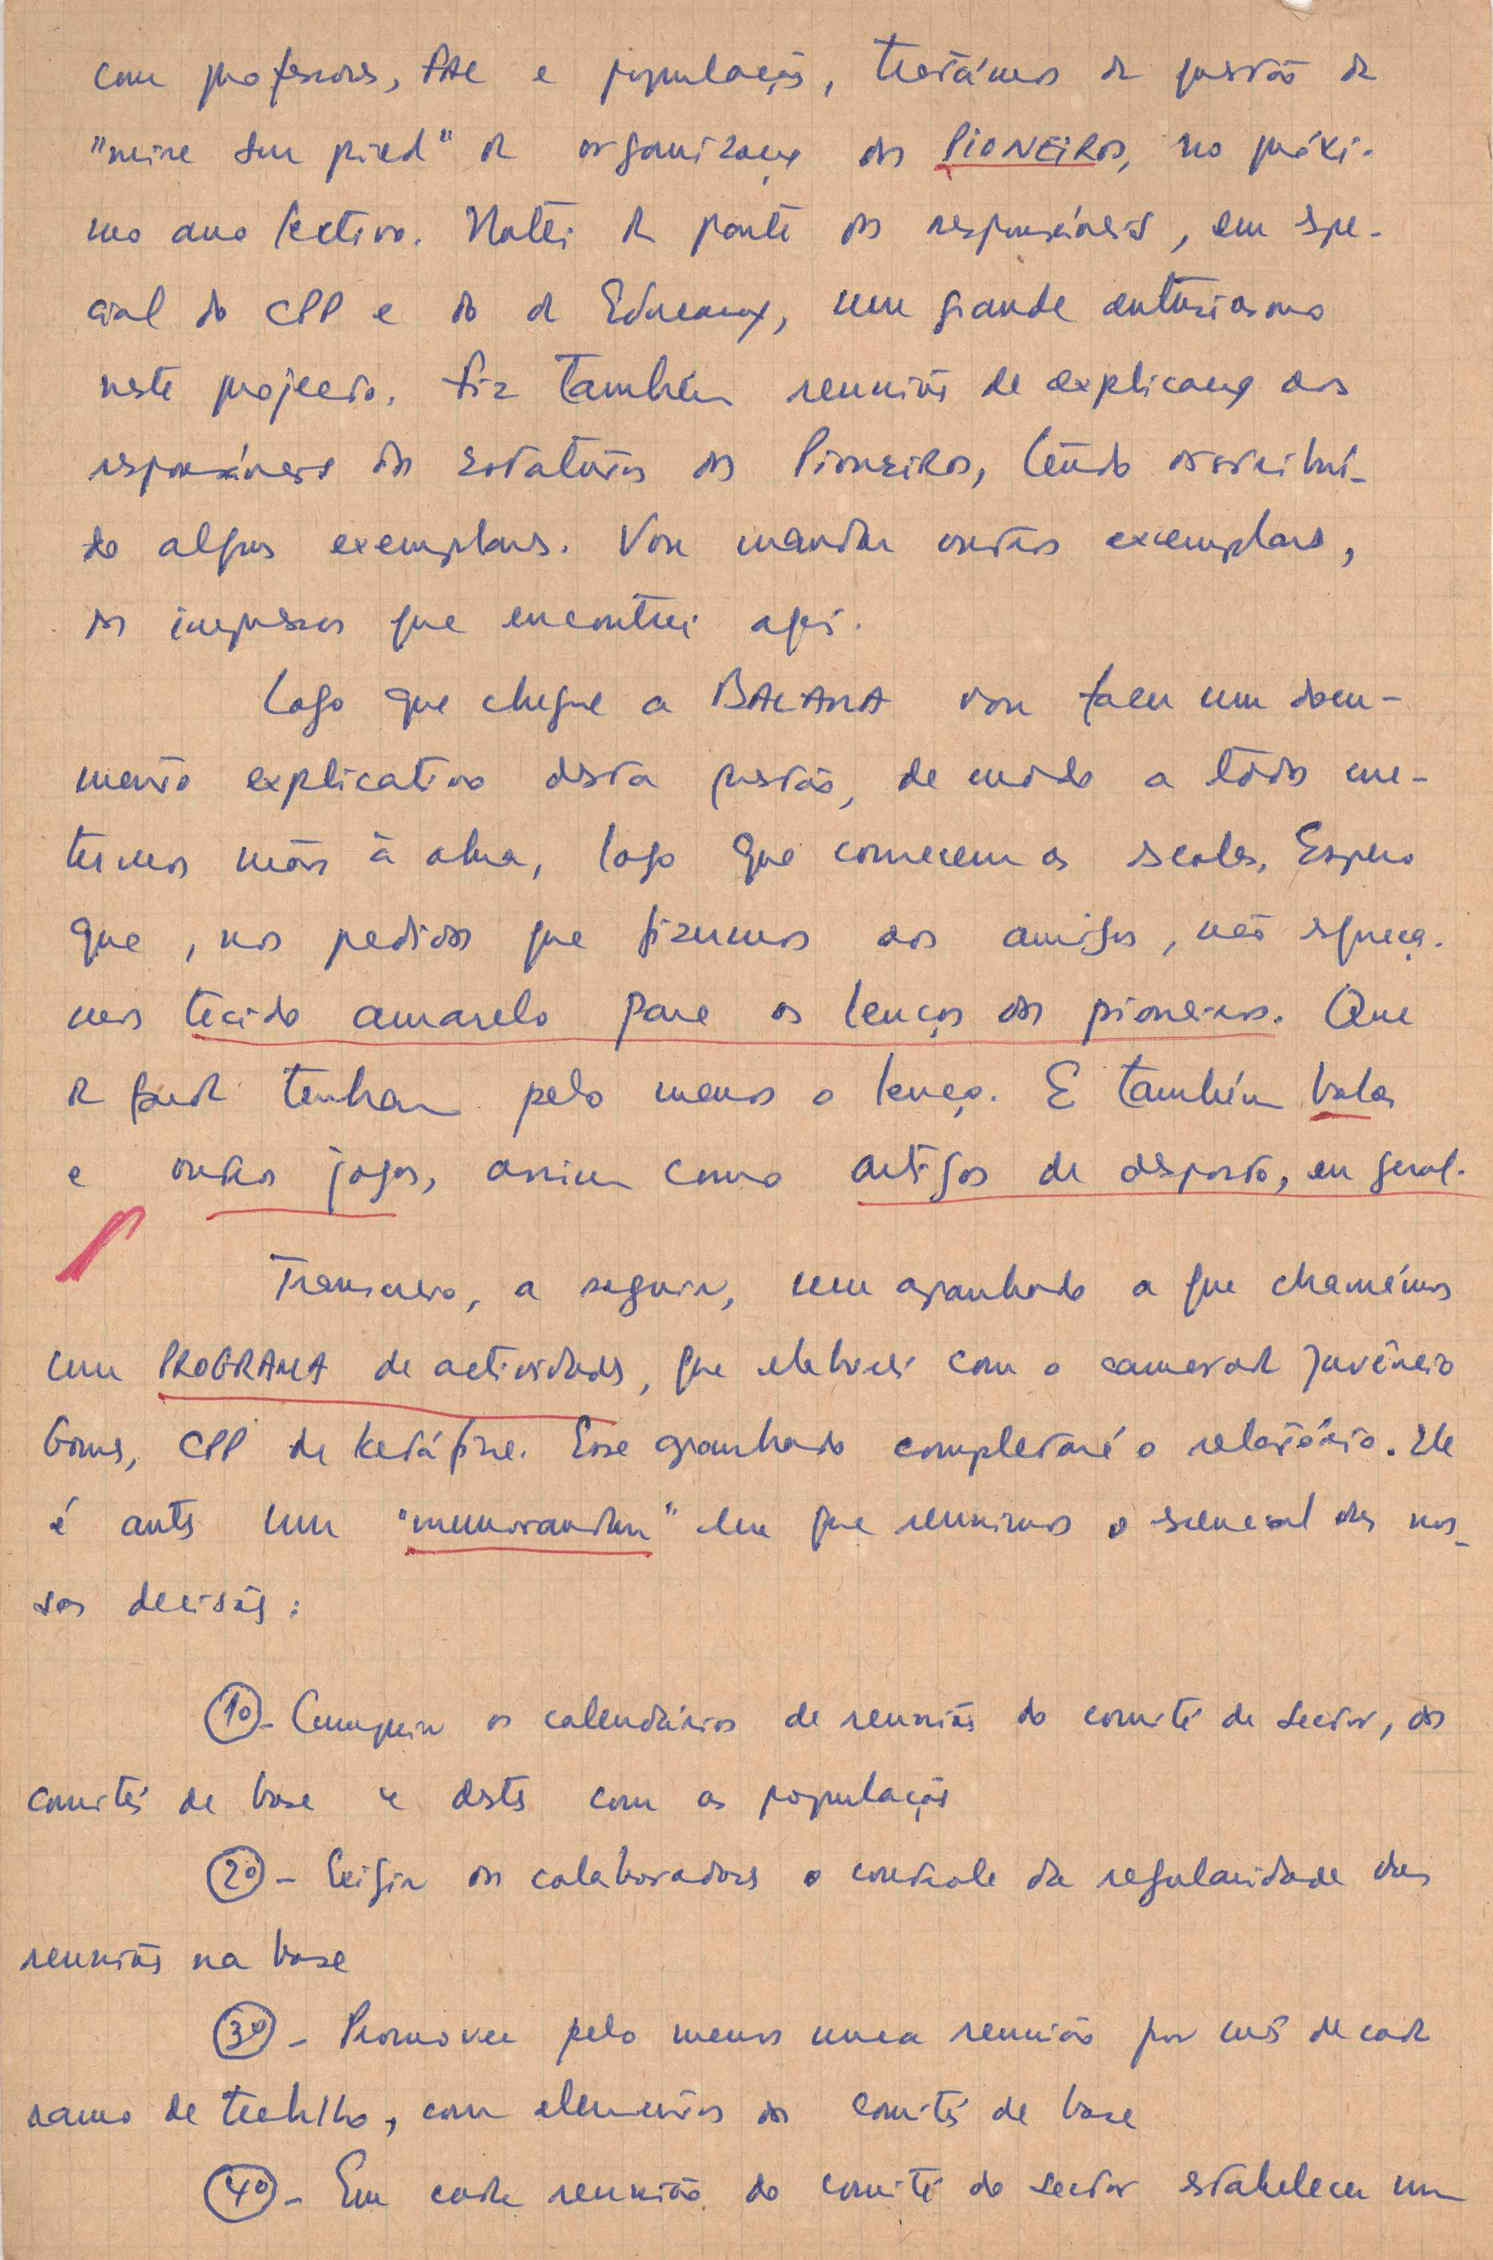 com professores, FAL e população, tratámos da questão da
"mise sur pied" da organização dos PIONEIROS, no próxi-
mo ano lectivo. Notei da parte dos responsáveis, em espe-
cial do CPP e do da Educação, um grande entusiasmo
neste projecto. Fiz também reuniões de explicação aos
responsáveis dos estatutos dos Pioneiros, tendo distribuí-
do alguns exemplares. Vou mandar outros exemplares,
dos impressos que encontrei aqui.
Logo que chegue a BALANA vou fazer um docu-
mento explicativo desta questão, de modo a todos me-
termos mãos à obra, logo que comecem as escolas. Espero
que, nos pedidos que fizermos aos amigos, não esqueça-
mos tecido amarelo para os lenços dos pioneiros. Que
a farda tenham pelo menos o lenço. E também bolas
e outros jogos, assim como artigos de desporto, em geral.
Transcrevo, a seguir, um apanhado a que chamámos
um PROGRAMA de actividades, que elaborei com o camarada Juvêncio
Gomes, CPP de Ketáfine. Esse apanhado completará o relatório. Ele
é antes um "memorandum" em que reunimos o essencial das nos-
sas decisões:
1º - Cumprir os calendários de reuniões do comité de sector, dos
comités de base e destes com as populações
2º - Exigir dos colaboradores o controle da regularidade das
reuniões na base
3º - Promover pelo menos uma reunião por mês de cada
ramo de trabalho, com elementos dos comités de base
4º - Em cada reunião do comité do sector estabelecer um